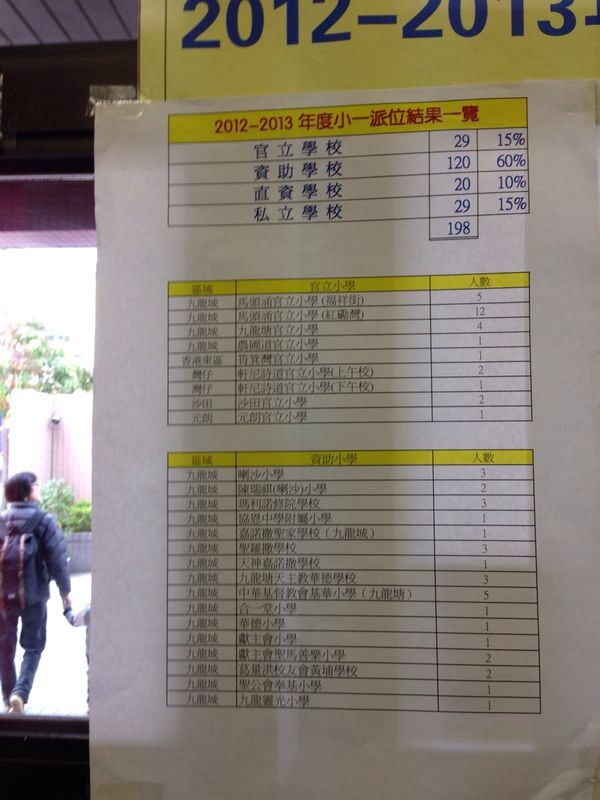 2012-2013年
2012-2013 年度小一派位結果一覽
官立學校 29 15%
資助學校 120 60%
直資學校 20 10%
私立學校 29 15%
198
區域 官立小學 人數
九龍城 馬頭涌官立小學(福祥街) 5
九龍城 馬頭涌官立小學(紅磡灣) 12
九龍城 九龍塘官立小學 4
九龍城 農圃道官立小學 1
香港東區 筲箕灣官立小學 1
灣仔 軒尼詩道官立小學(上午校) 2
灣仔 軒尼詩道官立小學(下午校) 1
沙田 沙田官立小學 2
元朗 元朗官立小學 1
區域 資助小學 人數
九龍城 喇沙小學 3
九龍城 陳瑞祺(喇沙)小學 2
九龍城 瑪利諾修院學校 3
九龍城 協恩中學附屬小學 1
九龍城 嘉諾撒聖家學校（九龍城） 1
九龍城 聖羅撒學校 3
九龍城 天神嘉諾撒學校 1
九龍城 九龍塘天主教華德學校 3
九龍城 中華基督教會基華小學（九龍塘） 5
九龍城 合一堂小學 1
九龍城 華德小學 1
九龍城 獻主會小學 1
九龍城 獻主會聖馬善樂小學 2
九龍城 葛量洪校友會黃埔學校 2
九龍城 聖公會奉基小學 1
九龍城 九龍靈光小學 1